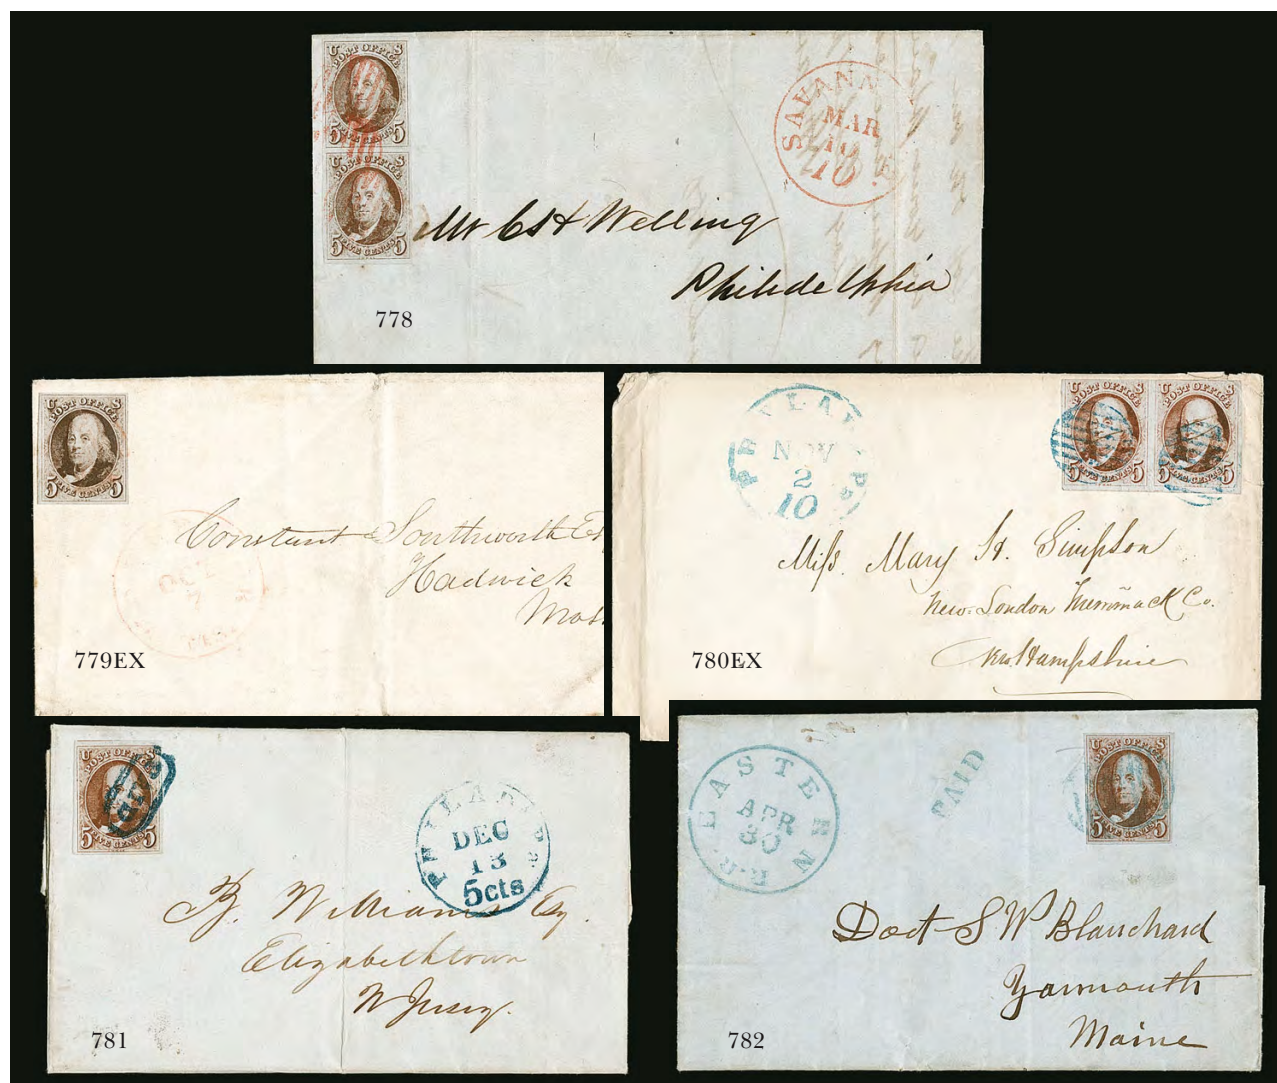 U S
POST OFFICE
5 FIVE CENTS 5
U S
POST OFFICE
5 FIVE CENTS 5
SAVANA
MAR
10
10
Mr Cs H Welling
Philidelphia
778
U S
POST OFFICE
5 FIVE CENTS 5
Constant Southworth Es
Hadwick
Mas.
779EX
PHILADA Pa
NOV
2
10
U S
POST OFFICE
5 FIVE CENTS 5
U S
POST OFFICE
5 FIVE CENTS 5
Miss. Mary H. Simpson
New-London Merrimack Co.
New Hampshire
780EX
U S
POST OFFICE
5 FIVE CENTS 5
PHILADA Pa
DEC
13
5cts
B. Williams Esq.
Elizabethtown
N Jersey.
781
EASTERN R.R.
APR
30
PAID
U S
POST OFFICE
5 FIVE CENTS 5
Doct S W Blanchard
Yarmouth
Maine
782